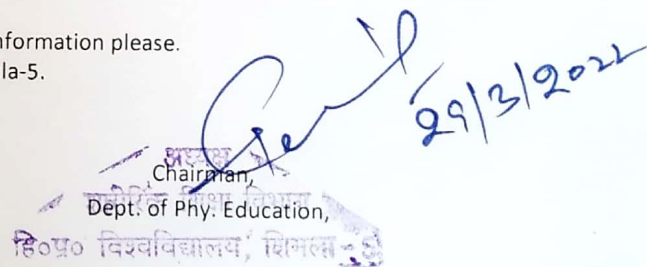 nformation please.
la-5.
29/3/2022
अध्यक्ष
Chairman,
शारीरिक शिक्षा विभाग
Dept. of Phy. Education,
हि०प्र० विश्वविद्यालय, शिमला-5